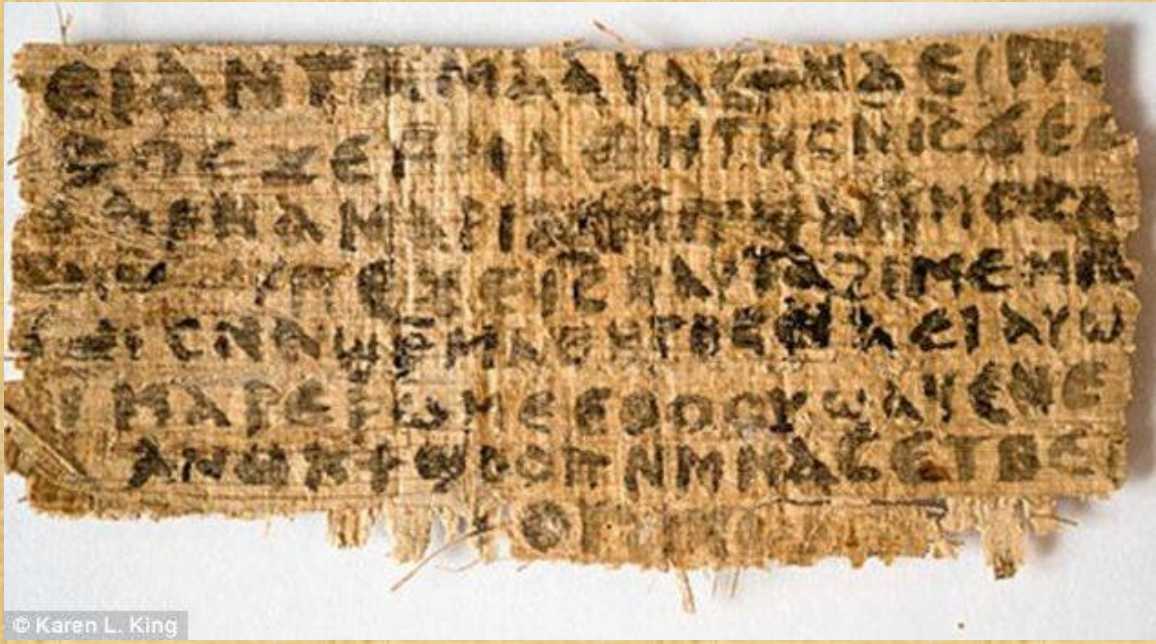 ⲉⲓ ⲁⲛ ⲧⲁⲙⲁⲁⲩ ⲁⲥϯ ⲛⲁⲉⲓ ⲡ
ⲡⲉϫⲉ ⲙⲙⲁⲑⲏⲧⲏⲥ ⲛⲓ̅ⲥ̅ ϫⲉ
ⲁⲣⲛⲁ ⲙⲁⲣⲓⲁⲙ
ⲡⲉϫⲉ ⲓ̅ⲥ̅ ⲛⲁⲩ ⲧⲁϩⲓⲙⲉ ⲙⲛ
ⲥⲛⲁϣⲣⲙⲁⲑⲏⲧⲏⲥ ⲛⲁⲉⲓ ⲁⲩⲱ
ⲙⲁⲣⲉⲣⲱⲙⲉ ⲉⲑⲟⲟⲩ ϣⲁϥⲉ ⲛⲉ
ⲁⲛⲟⲕ ϯϣⲟⲟⲡ ⲛⲙⲙⲁⲥ ⲉⲧⲃⲉ
© Karen L. King